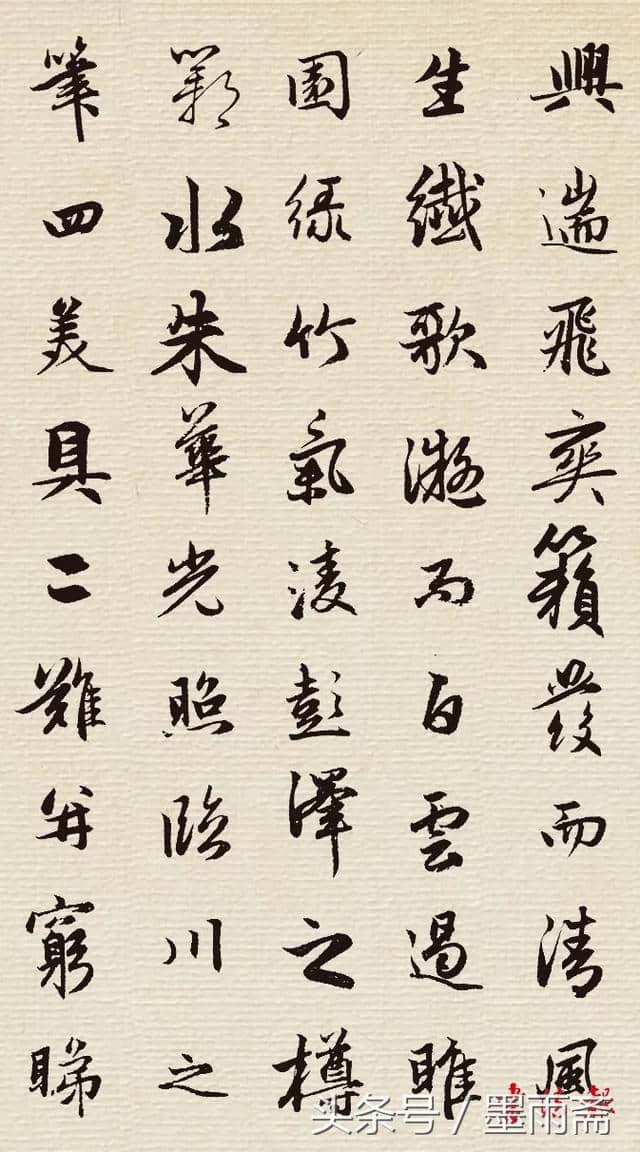 興遄飛爽籟發而清風
生纖歌凝而白雲遏睢
園綠竹氣凌彭澤之樽
鄴水朱華光照臨川之
筆四美具二難并窮睇
头条号 / 墨雨斋